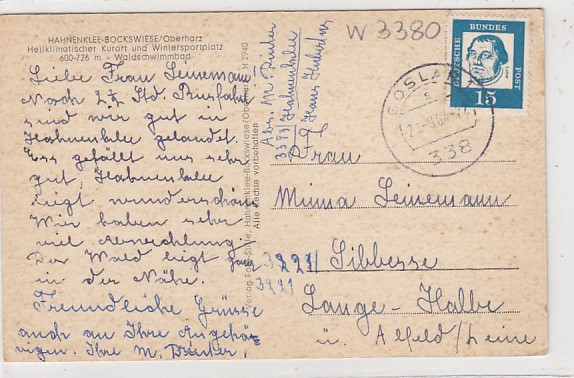 HAHNENKLEE-BOCKSWIESE/Oberharz
Heilklimatischer Kurort und Wintersportplatz
600-726 m - Waldschwimmbad
Liebe Frau Seinemann
Nach 2½ Std. Busfahrt
sind wir gut in
Hahnenklee gelandet.
Es gefällt uns sehr
gut, Hahnenklee
liegt wunderschön
Wir haben sehr
viel Abwechslung.
Der Wald liegt ganz
in der Nähe.
Freundliche Grüsse
auch an Ihre Angehö-
rigen. Ihre M.
Hahnenklee-Bockswiese/Oberharz H 2940
Alle Rechte vorbehalten
Abs. M.
3393 Hahnenklee
Haus
W 3380
DEUTSCHE BUNDES POST
15
GOSLA
338
Frau
Minna Seinemann
3221/ Sibbesse
3221
Lange-Halbe
ü. Alfeld/Leine